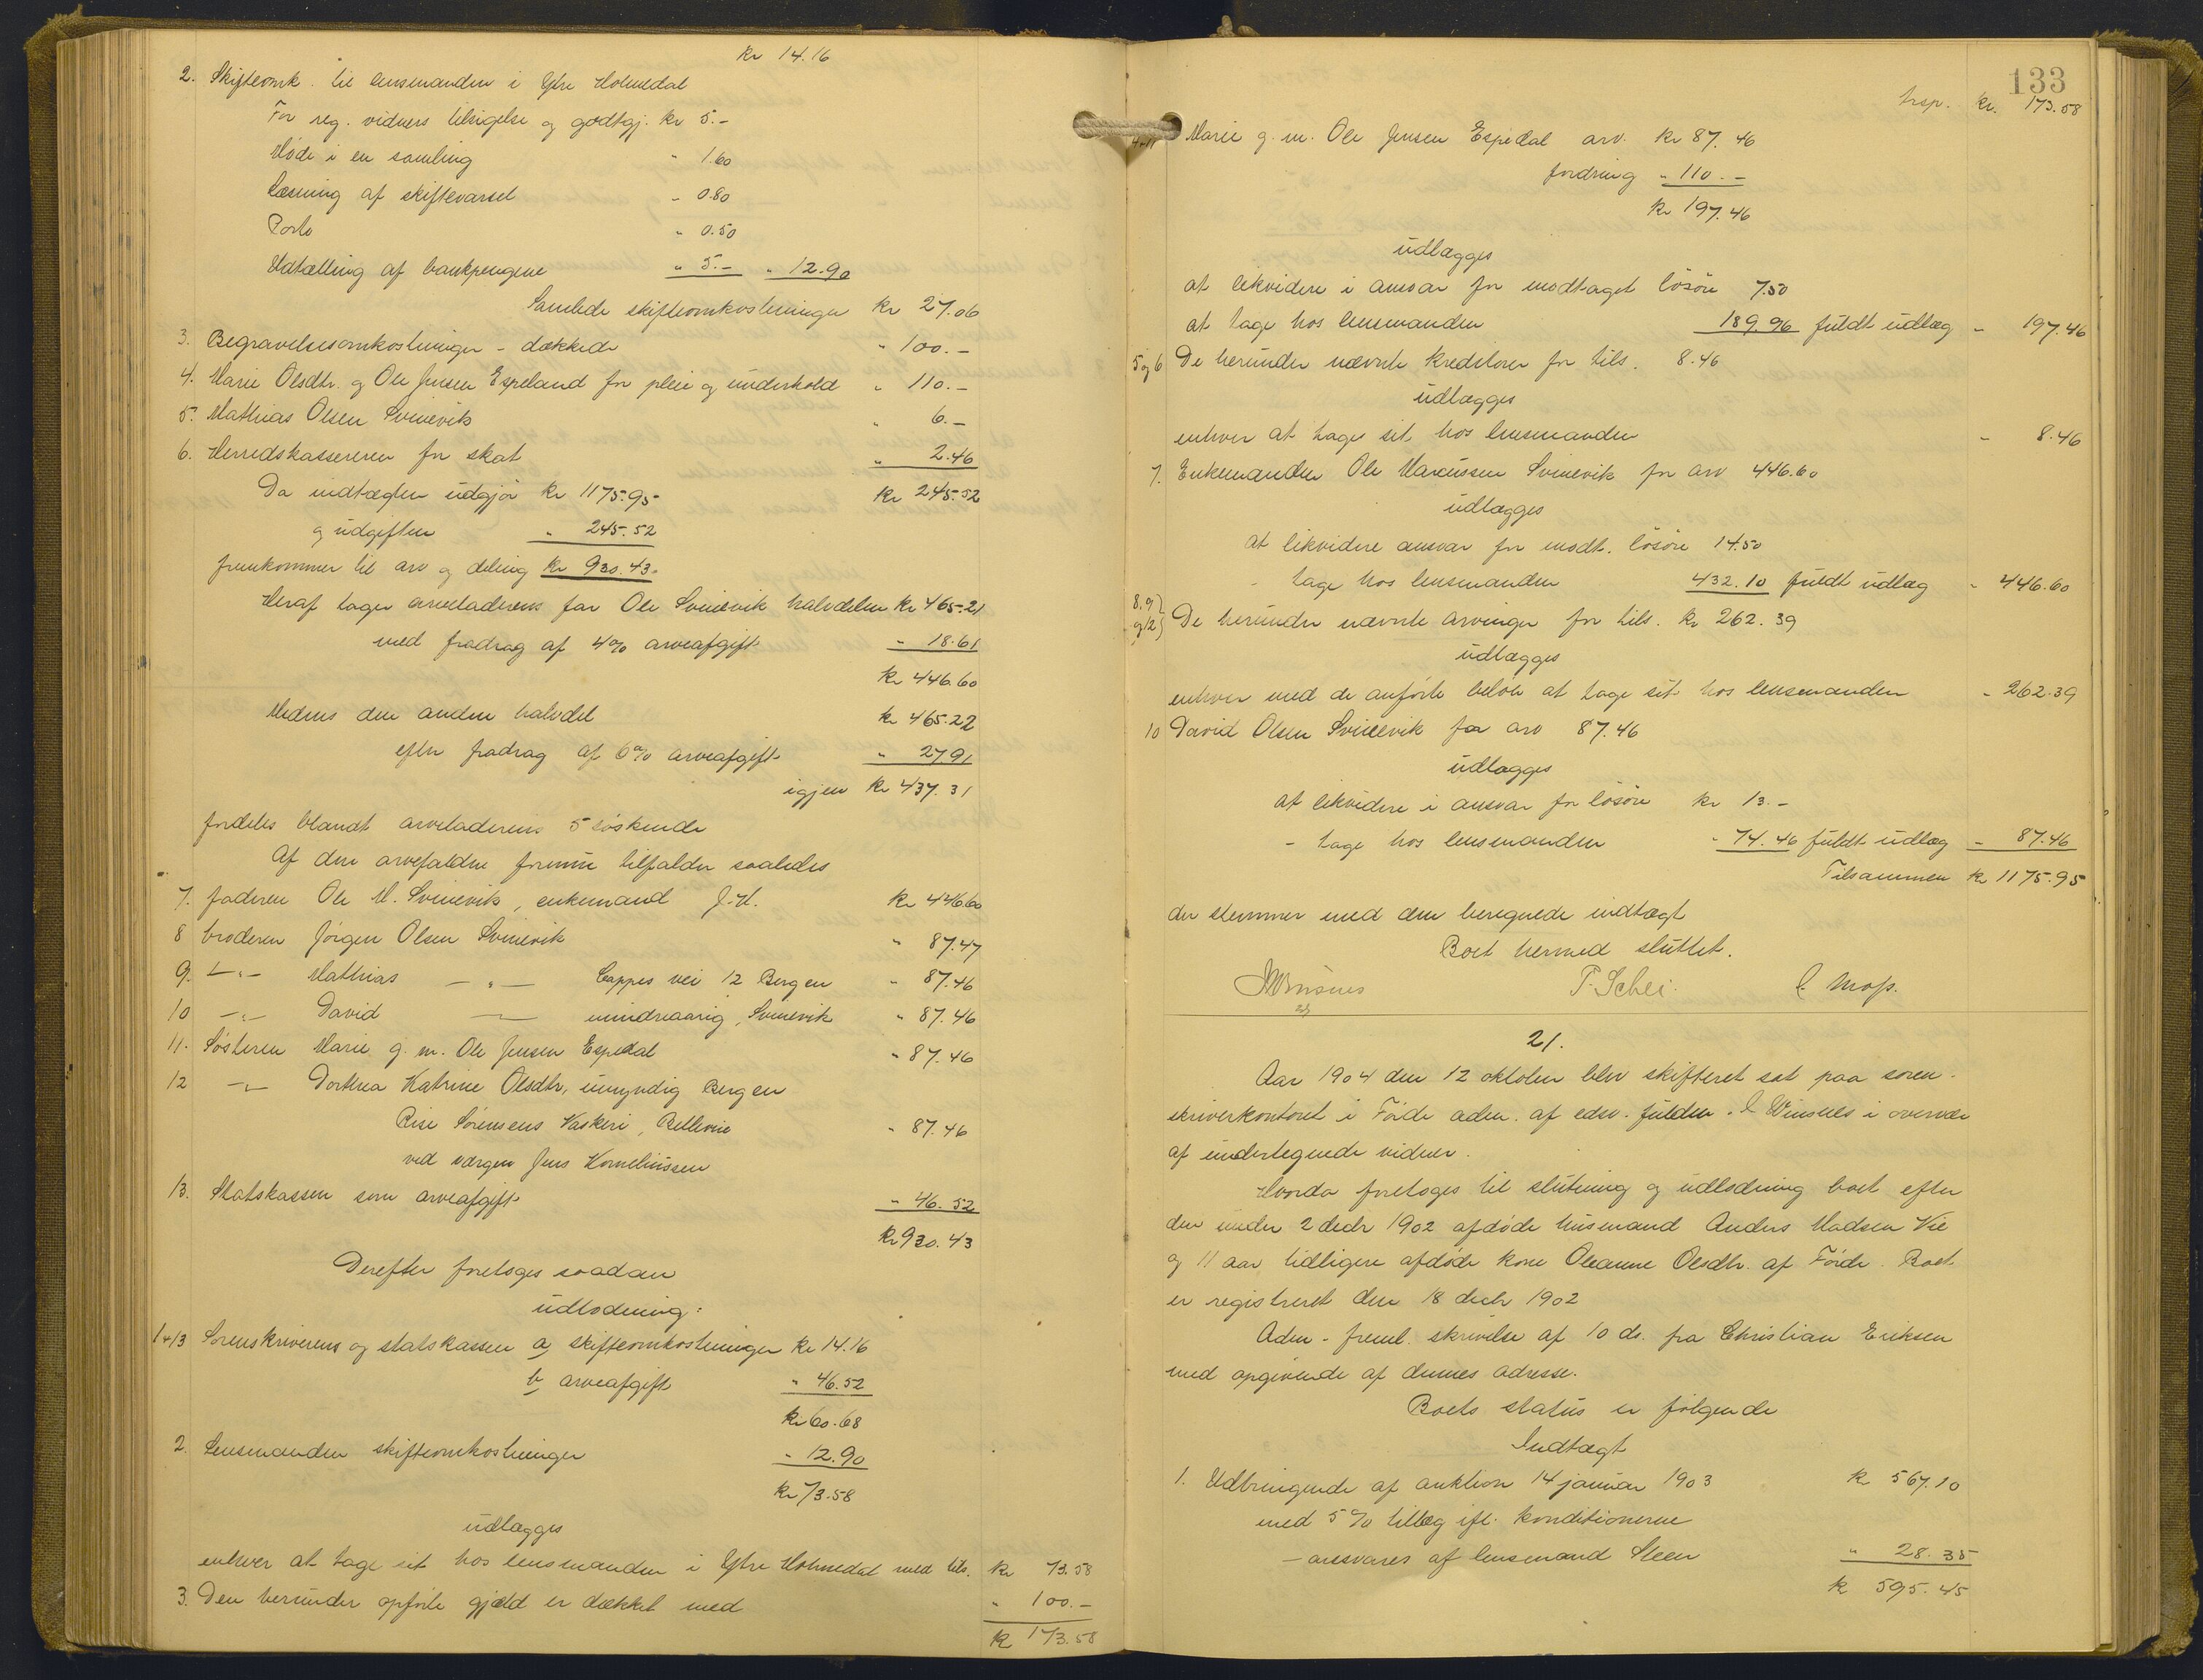 kr 14.16
2. Skifteomk. til lensmanden i Ytre Holmedal
For reg. vidners tilsigelse og godtgj. kr 5.-
Møde i en samling " 1.60
Læsning af skiftevarsel " 0.80
Porto " 0.50
Udtælling af bankpengene " 5.- " 12.90
Samlede skifteomkostninger kr 27.06
3. Begravelsesomkostninger - dækkede " 100.-
4. Marie Olsdtr. og Ole Jensen Espeland for pleie og underhold " 110.-
5. Mathias Olsen Svinevik " 6.-
6. Herredskassereren for skat " 2.46
Da indtægten udgjør kr 1175.95 kr 245.52
og udgiften " 245.52
fremkommer til arv og deling kr 930.43
Heraf tager arveladerens far Ole Svinevik halvdelen kr 465.21
med fradrag af 4% arveafgift " 18.61
kr 446.60
Medens den anden halvdel kr 465.22
efter fradrag af 6% arveafgift " 27.91
igjen kr 437.31
fordeles blandt arveladerens 5 søskende
Af den arvefaldne formue tilfalder saaledes
7. faderen Ole M. Svinevik, enkemand J.H. kr 446.60
8 broderen Jørgen Olsen Svinevik " 87.47
9. -"- Mathias -"- Cappes vei 12 Bergen " 87.46
10 -"- David -"- mindreaarig, Svinevik " 87.46
11. Søsteren Marie g. m. Ole Jensen Espedal " 87.46
12 -"- Dorthea Katrine Olsdtr, umyndig Bergen
Rise Sørensens Vaskeri, Bellevue " 87.46
ved værgen Jens Korneliussen
13. Statskassen som arveafgift " 46.52
kr 930.43
Derefter foretoges saadan
udlodning:
1+13 Sorenskriverens og statskassen a, skifteomkostninger kr 14.16
b, arveafgift " 46.52
kr 60.68
2. Lensmanden skifteomkostninger " 12.90
kr 73.58
udlægges
enhver at tage sit hos lensmanden i Ytre Holmedal med tils. kr 73.58
3. Den herunder opførte gjæld er dækket med " 100.-
kr 173.58
133
trsp. kr. 173.58
4-11 Marie g. m. Ole Jensen Espedal arv. kr 87.46
fordring " 110.-
kr 197.46
udlægges
at likvidere i ansvar for modtaget løsøre 7.50
at tage hos lensmanden 189.96 fuldt udlæg " 197.46
5 og 6 De herunder nævnte kreditorer for tils. 8.46
udlægges
enhver at tage sit hos lensmanden " 8.46
7. Enkemanden Ole Marcussen Svinevik for arv 446.60
udlægges
at likvidere ansvar for modt. løsøre 14.50
- tage hos lensmanden 432.10 fuldt udlæg " 446.60
8.9 og 12 De herunder nævnte arvinger for tils. kr 262.39
udlægges
enhver med de anførte beløb at tage sit hos lensmanden " 262.39
10 David Olsen Svinevik for arv 87.46
udlægges
at likvidere i ansvar for løsøre kr 13.-
- tage hos lensmanden " 74.46 fuldt udlæg " 87.46
Tilsammen kr 1175.95
der stemmer med den beregnede indtægt
Boet hermed sluttet.
Winsnes T. Schei. C. Moss.
21.
Aar 1904 den 12 oktober blev skifteret sat paa soren-
skriverkontoret i Førde adm. af edsv. fuldm. Winsnes i overvær
af undertegnede vidner.
Hvorda foretoges til slutning og udlodning boet efter
den under 2 decbr 1902 afdøde husmand Anders Madsen Vie
og 11 aar tidligere afdøde kone Oleanne Olsdtr. af Førde. Boet
er registreret den 18 decbr 1902
Adm. freml. skrivelse af 10 ds. fra Christian Eriksen
med opgivende af dennes adresse.
Boets status er følgende
Indtægt
1. Udbringende af auktion 14 januar 1903 kr 567.10
med 5% tillæg ifl. konditionerne
- ansvares af lensmand Steen " 28.35
kr 595.45